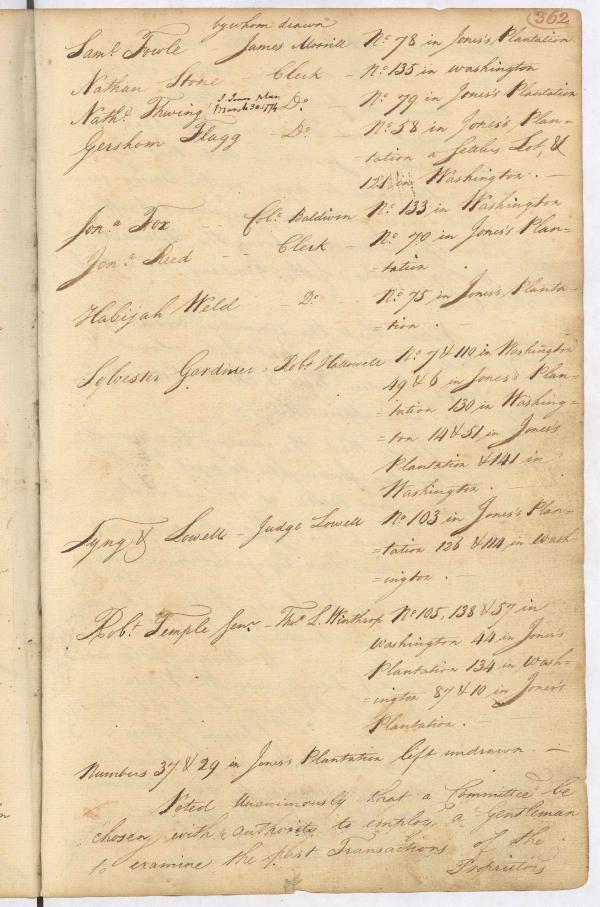 362
by whom drawn
Saml. Fowle James Morrill No. 78 in Jones's Plantation
Nathan Stone Clerk - No. 135 in washington
Nathl. Thwing Do. No. 79 in Jones's Plantation
March 30. 1774
Gershom Flagg - Do. - No. 58 in Jones's Plan-
=tation a Settlers Lot, &
121 in Washington. -
Jona. Fox - Col. Baldwin No. 133 in Washington
Jona. Reed - - Clerk - No. 70 in Jones's Plan-
=tation.
Habijah Weld - Do. - No. 75 in Jones's Planta-
=tion.
Sylvester Gardiner - Robt. Hallowell No. 7 & 110 in Washington
49 & 6 in Jones's Plan-
=tation 130 in Washing-
=ton 14 & 51 in Jones's
Plantation & 141 in
Washington.
Tyng & Lowells - Judge Lowell No. 103 in Jones's Plan-
=tation 126 & 114 in Wash-
=ington. -
Robt. Temple Senr. - Thos. L. Winthrop No. 105, 138 & 57 in
Washington 44 in Jones's
Plantation 134 in Wash-
=ington 87 & 10 in Jones's
Plantation. -
Numbers 37 & 29 in Jones's Plantation left undrawn. -
Voted Unanimously that a Committee be
chosen with authority to employ a Gentleman
to examine the past Transactions of the
Proprietors